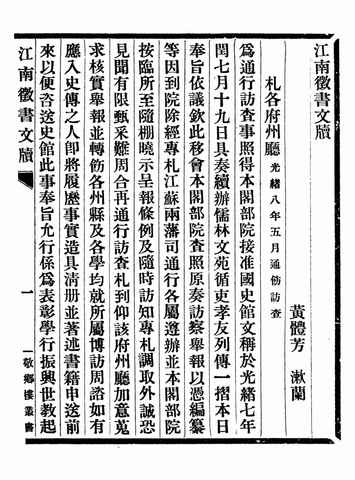 江南徵書文牘
黃體芳　漱蘭
札各府州廳光緒八年五月通飭訪查
爲通行訪查事照得本閣部院接准國史館文稱於光緒七年
閏七月十九日具奏續辦儒林文苑循吏孝友列傳一摺本日
奉旨依議欽此移會本閣部院查照原奏訪察舉報以憑編纂
等因到院除經專札江蘇兩藩司通行各屬遵辦並本閣部院
按臨所至隨棚曉示呈報條例及隨時訪知專札調取外誠恐
見聞有限甄采難周合再通行訪查札到仰該府州廳加意蒐
求核實舉報並轉飭各州縣及各學均就所屬博訪周諮如有
應入史傳之人卽將履歷事實造具清册並著述書籍申送前
來以便咨送史館此事奉旨允行係爲表彰學行振興世教起
江南徵書文牘
一
敬鄉樓叢書